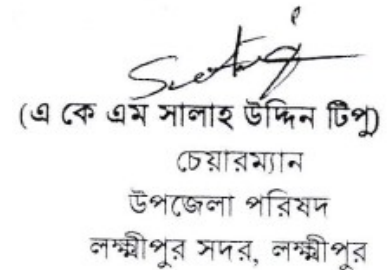 (এ কে এম সালাহ উদ্দিন টিপু)
চেয়ারম্যান
উপজেলা পরিষদ
লক্ষ্মীপুর সদর, লক্ষ্মীপুর